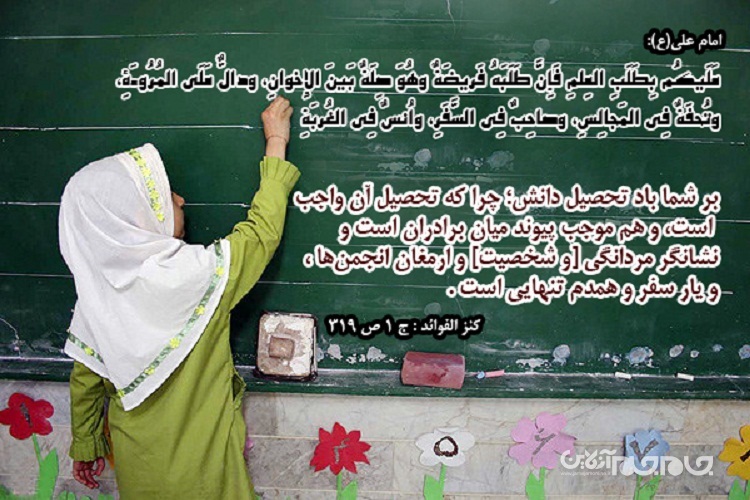 امام علی(ع):
عَلَيكُم بِطَلَبِ العِلمِ فَإِنَّ طَلَبَهُ فَريضَةٌ وهُوَ صِلَةٌ بَينَ الإِخوانِ، ودالٌّ عَلَى المُرُوءَةِ،
وتُحفَةٌ فِى المَجالِسِ، وصاحِبٌ فِى السَّفَرِ، واُنسٌ فِى الغُربَةِ
بر شما باد تحصیل دانش؛ چرا که تحصیل آن واجب
است، و هم موجب پیوند میان برادران است و
نشانگر مردانگی [و شخصیت] و ارمغان انجمن‌ها،
و یار سفر و همدم تنهایی است.
کنز الفوائد : ج ۱ ص ۳۱۹
۵ ۶ ۷
جام‌جم آنلاین